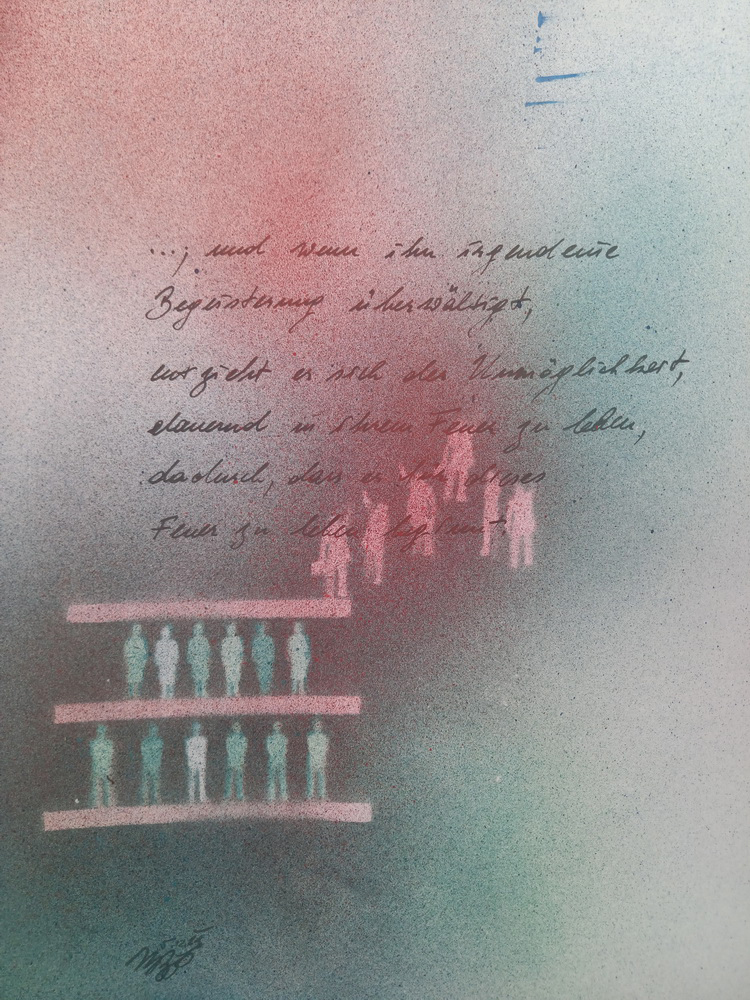 ...; und wenn ihn irgendeine
Begeisterung überwältigt,
vorzieht er sich der Unmöglichkeit,
dauernd in ihrem Feuer zu leben,
dadurch, dass er für dieses
Feuer zu leben beginnt.